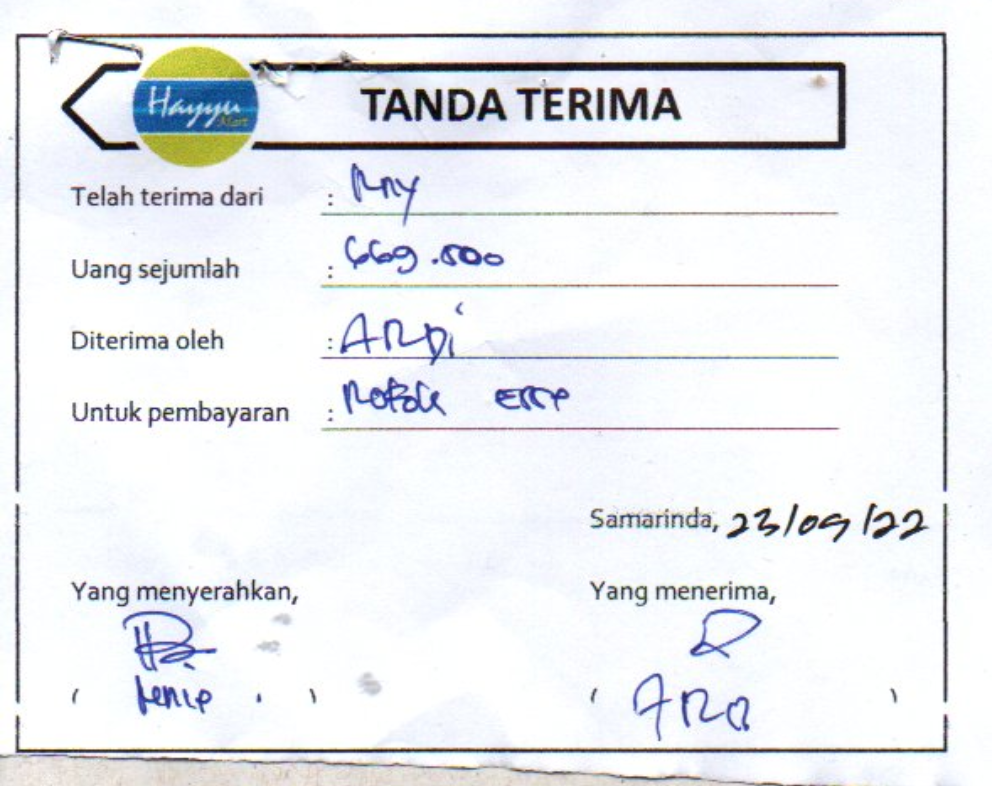 Hayyu
Mart
TANDA TERIMA
Telah terima dari :
Uang sejumlah : 669.500
Diterima oleh : ARDi
Untuk pembayaran :
Samarinda, 23/09/22
Yang menyerahkan,
Yang menerima,
( . )
( )